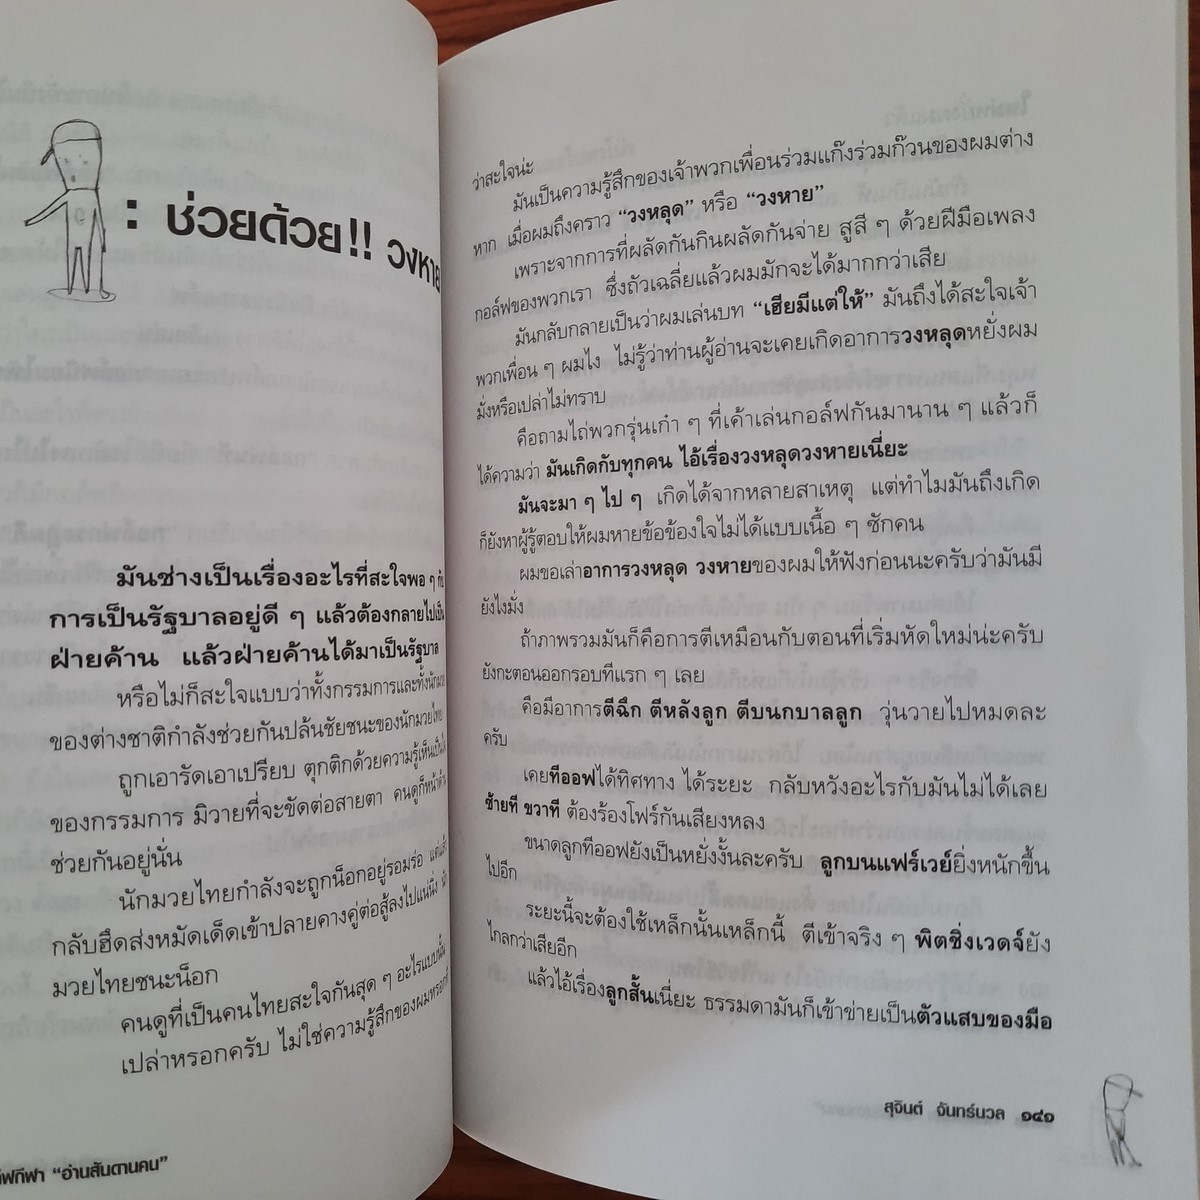 : ช่วยด้วย!! วงหาย
มันช่างเป็นเรื่องอะไรที่สะใจพอ ๆ กับ
การเป็นรัฐบาลอยู่ดี ๆ แล้วต้องกลายไปเป็น
ฝ่ายค้าน แล้วฝ่ายค้านได้มาเป็นรัฐบาล
หรือไม่ก็สะใจแบบว่าทั้งกรรมการและทั้งนักมวย
ของต่างชาติกำลังช่วยกันปล้นชัยชนะของนักมวยไทย
ถูกเอารัดเอาเปรียบ ตุกติกด้วยความรู้เห็นเป็นใจ
ของกรรมการ มิวายที่จะขัดต่อสายตา คนดูก็หน้าด้าน
ช่วยกันอยู่นั่น
นักมวยไทยกำลังจะถูกน็อกอยู่รอมร่อ แต่แล้ว
กลับฮึดส่งหมัดเด็ดเข้าปลายคางคู่ต่อสู้ลงไปแน่นิ่ง นัก
มวยไทยชนะน็อก
คนดูที่เป็นคนไทยสะใจกันสุด ๆ อะไรแบบนั้น
เปล่าหรอกครับ ไม่ใช่ความรู้สึกของผมหรอกที่
กีฬา “อ่านสันดานคน”
ว่าสะใจน่ะ
มันเป็นความรู้สึกของเจ้าพวกเพื่อนร่วมแก๊งร่วมก๊วนของผมต่าง
หาก เมื่อผมถึงคราว “วงหลุด” หรือ “วงหาย”
เพราะจากการที่ผลัดกันกินผลัดกันจ่าย สูสี ๆ ด้วยฝีมือเพลง
กอล์ฟของพวกเรา ซึ่งถัวเฉลี่ยแล้วผมมักจะได้มากกว่าเสีย
มันกลับกลายเป็นว่าผมเล่นบท “เฮียมีแต่ให้” มันถึงได้สะใจเจ้า
พวกเพื่อน ๆ ผมไง ไม่รู้ว่าท่านผู้อ่านจะเคยเกิดอาการวงหลุดหยั่งผม
มั่งหรือเปล่าไม่ทราบ
คือถามไถ่พวกรุ่นเก๋า ๆ ที่เค้าเล่นกอล์ฟกันมานาน ๆ แล้วก็
ได้ความว่า มันเกิดกับทุกคน ไอ้เรื่องวงหลุดวงหายเนี่ยะ
มันจะมา ๆ ไป ๆ เกิดได้จากหลายสาเหตุ แต่ทำไมมันถึงเกิด
ก็ยังหาผู้รู้ตอบให้ผมหายข้อข้องใจไม่ได้แบบเนื้อ ๆ ซักคน
ผมขอเล่าอาการวงหลุด วงหายของผมให้ฟังก่อนนะครับว่ามันมี
ยังไงมั่ง
ถ้าภาพรวมมันก็คือการตีเหมือนกับตอนที่เริ่มหัดใหม่น่ะครับ
ยังกะตอนออกรอบทีแรก ๆ เลย
คือมีอาการตีฉึก ตีหลังลูก ตีบนกบาลลูก วุ่นวายไปหมดละ
ครับ
เคยทีออฟได้ทิศทาง ได้ระยะ กลับหวังอะไรกับมันไม่ได้เลย
ซ้ายที ขวาที ต้องร้องโฟร์กันเสียงหลง
ขนาดลูกทีออฟยังเป็นหยั่งงั้นละครับ ลูกบนแฟร์เวย์ยิ่งหนักขึ้น
ไปอีก
ระยะนี้จะต้องใช้เหล็กนั้นเหล็กนี้ ตีเข้าจริง ๆ พิตชิ่งเวดจ์ยัง
ไกลกว่าเสียอีก
แล้วไอ้เรื่องลูกสั้นเนี่ยะ ธรรมดามันก็เข้าข่ายเป็นตัวแสบของมือ
สุจินต์ จันทร์นวล ๑๔๑